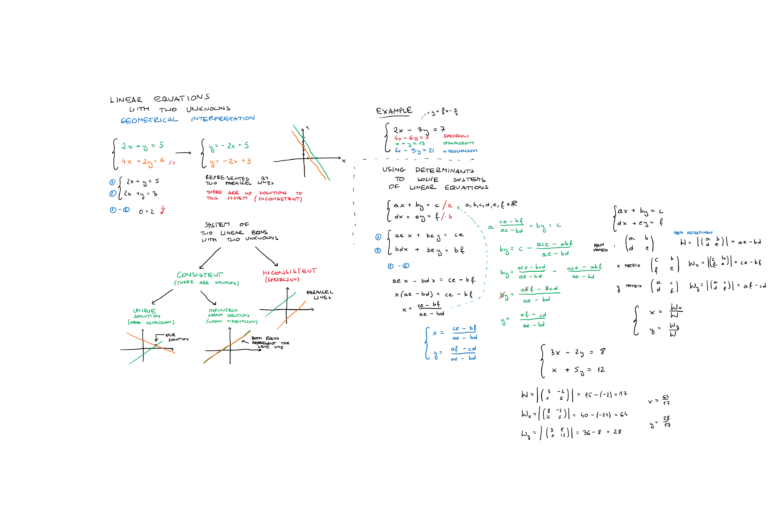 LINEAR EQUATIONS
WITH TWO UNKNOWNS
GEOMETRICAL INTERPRETATION
2x + y = 5
4x + 2y = 6 /:2
y = -2x + 5
y = -2x + 3
x
① 2x + y = 5
② 2x + y = 3
① - ② 0 = 2
REPRESENTED BY
TWO PARALLEL LINES
THERE ARE NO SOLUTIONS TO
THIS SYSTEM (INCONSISTENT)
SYSTEM OF
TWO LINEAR EQNS
WITH TWO UNKNOWNS
CONSISTENT
(THERE ARE SOLUTIONS)
INCONSISTENT
PARALLEL
LINES
UNIQUE
SOLUTION
ONE
SOLUTION
INFINITELY
MANY SOLUTIONS
BOTH EQNS
REPRESENT THE
SAME LINE
EXAMPLE
2x - 3y = 7
4x - 6y =
6x - 9y = 21
USING DETERMINANTS
TO SOLVE SYSTEMS
OF LINEAR EQUATIONS
ax + by = c /·e
dx + ey = f /·b
a, b, c, d, e, f ∈ ℝ
① aex + bey = ce
② bdx + bey = bf
① - ②
aex - bdx = ce - bf
x(ae - bd) = ce - bf
x = (ce - bf)/(ae - bd)
x = (ce - bf)/(ae - bd)
y = (af - cd)/(ae - bd)
a · (ce - bf)/(ae - bd) + by = c
by = c - (ace - abf)/(ae - bd)
by = (ace - bcd)/(ae - bd) - (ace - abf)/(ae - bd)
by = (abf - bcd)/(ae - bd)
y = (af - cd)/(ae - bd)
ax + by = c
dx + ey = f
MAIN DETERMINANT
MAIN
MATRIX (a b / d e) W = |(a b / d e)| = ae - bd
x MATRIX (c b / f e) Wx = |(c b / f e)| = ce - bf
y MATRIX (a c / d f) Wy = |(a c / d f)| = af - cd
x = Wx/W
y = Wy/W
3x - 2y = 8
x + 5y = 12
W = |(3 -2 / 1 5)| = 15 - (-2) = 17
Wx = |(8 -2 / 12 5)| = 40 - (-24) = 64
Wy = |(3 8 / 1 12)| = 36 - 8 = 28
x = 64/17
y = 28/17